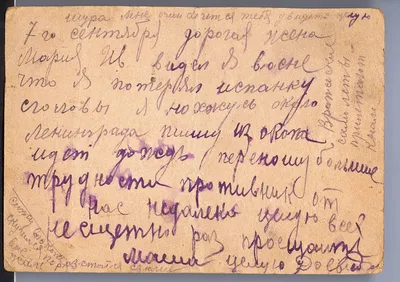 мне очень хочется тебя
7-го сентября дорогая жена
Мария Ив. видел я восне
что я потерял испанку
сголовы я нохжусь около
ленинграда пишу из окопа
идет дождь переношу большие
трудности противник от
нас недалеко целую всех
несщетно раз прощайте
маша целую
Вражеские
самолеты
прилетают